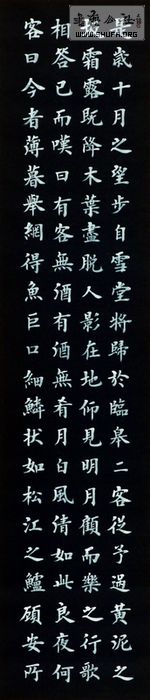 是歲十月之望步自雪堂將歸於臨皋二客從予過黃泥之
霜露既降木葉盡脫人影在地仰見明月顧而樂之行歌
相答已而嘆曰有客無酒有酒無肴月白風清如此良夜何
客曰今者薄暮舉網得魚巨口細鱗狀如松江之鱸顧安所
WWW.SHUFA.ORG